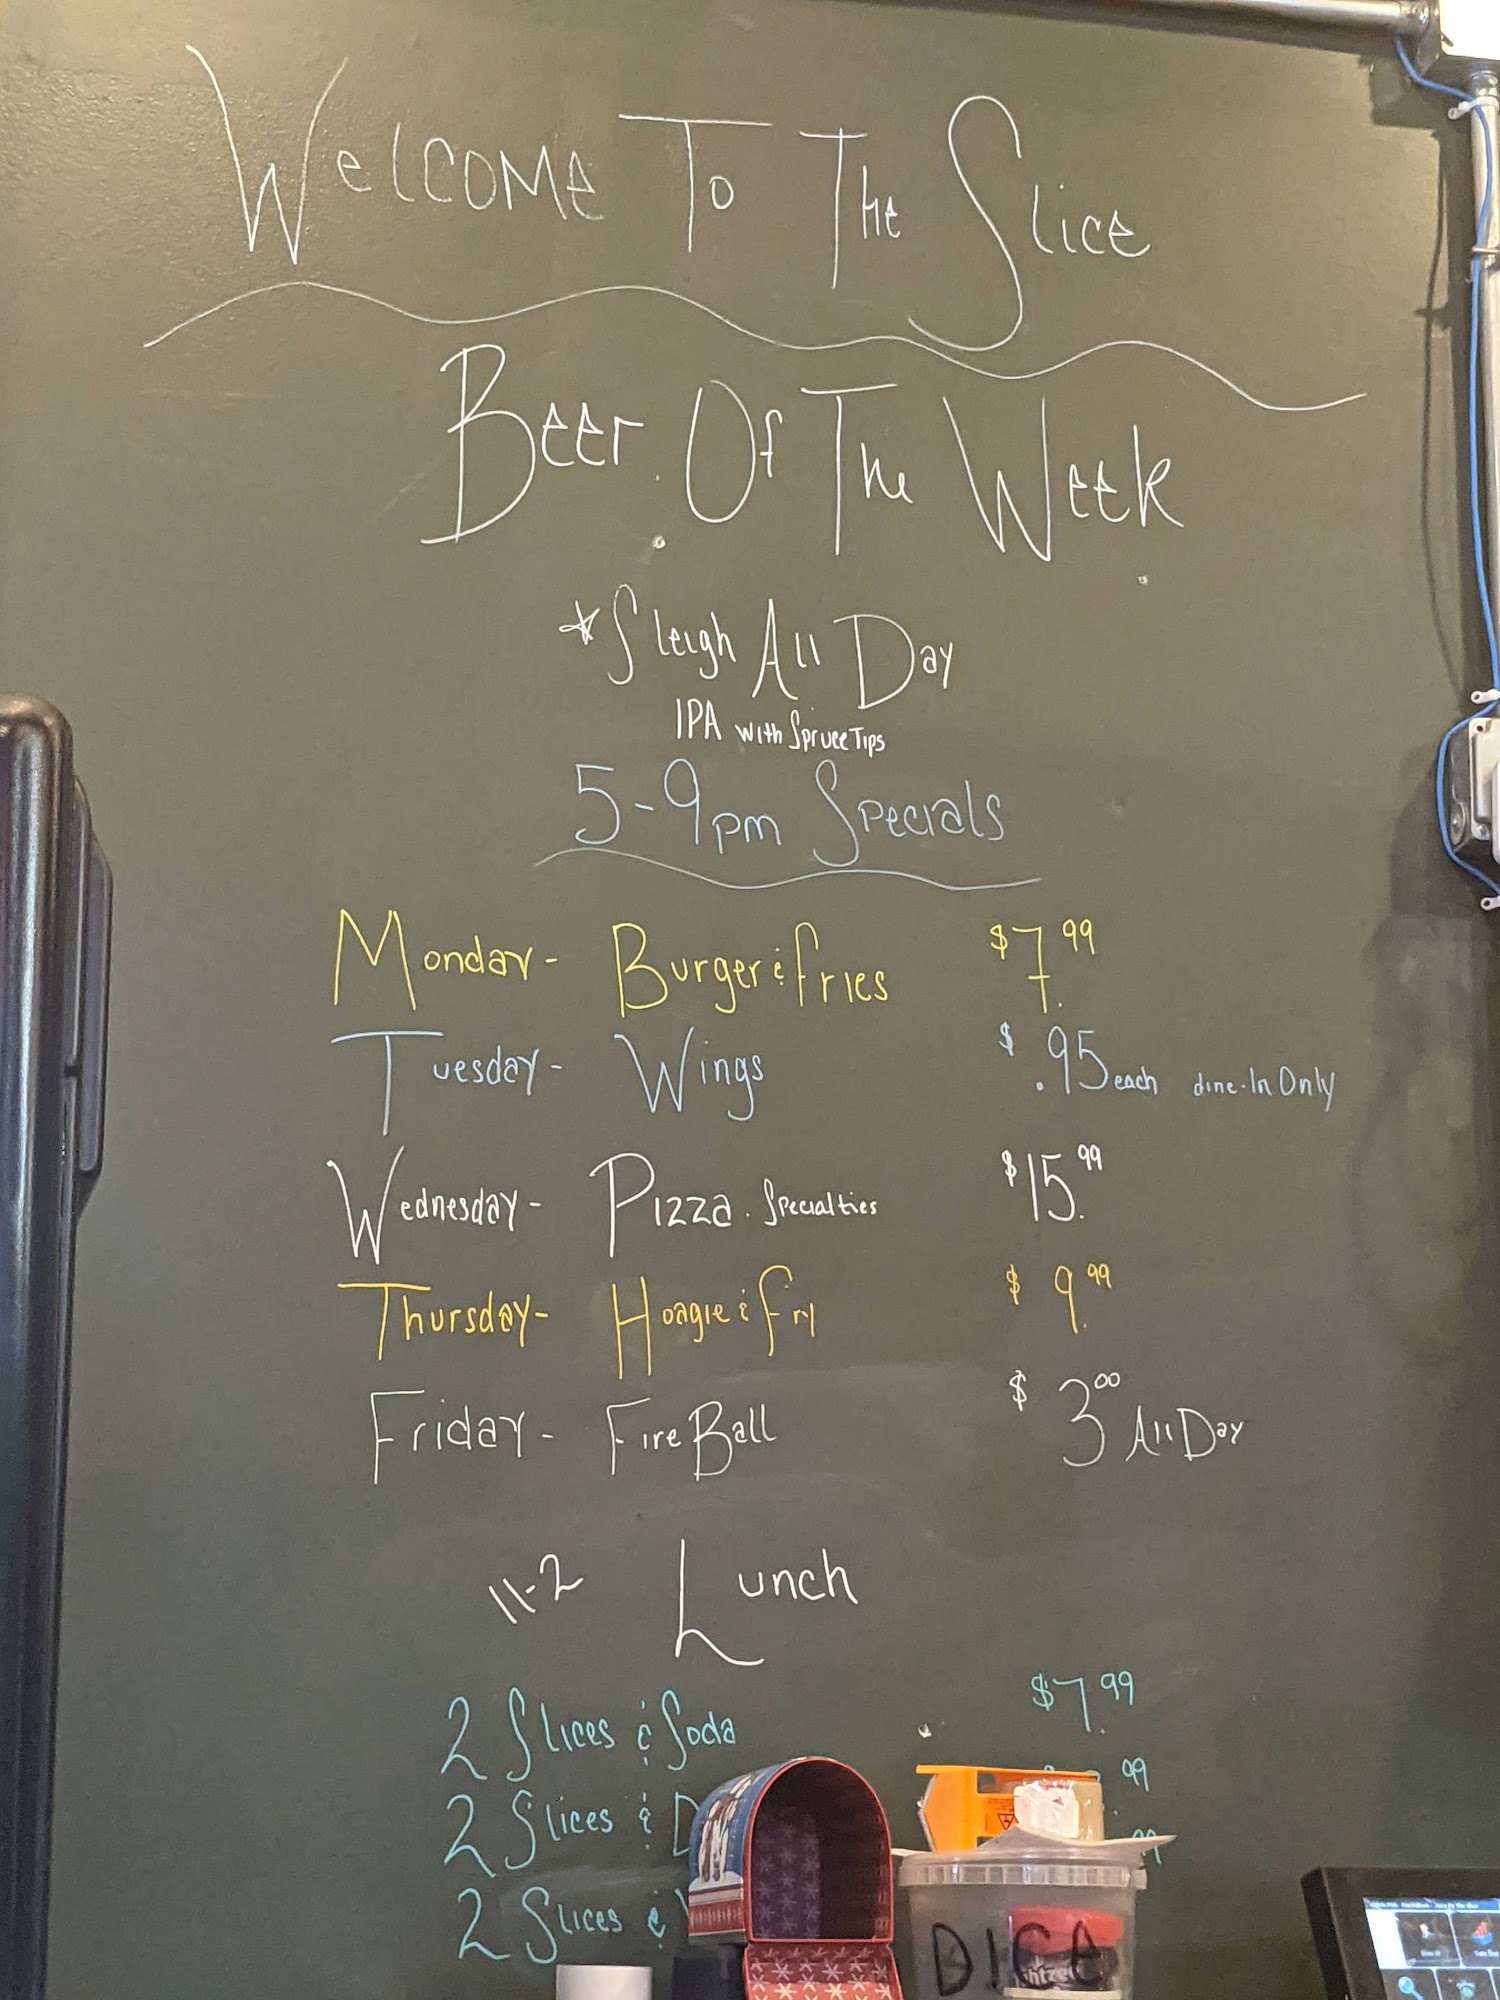 Welcome To The Slice
Beer Of The Week
*Sleigh All Day
IPA with Spruce Tips
5-9pm Specials
Monday- Burger & Fries $7.99
Tuesday- Wings $.95 each dine-In Only
Wednesday- Pizza. Specialties $15.99
Thursday- Hoagie & fry $9.99
Friday- Fire Ball $3.00 All Day
11-2 Lunch
2 Slices & Soda $7.99
2 Slices & .99
2 Slices & 99
DICE